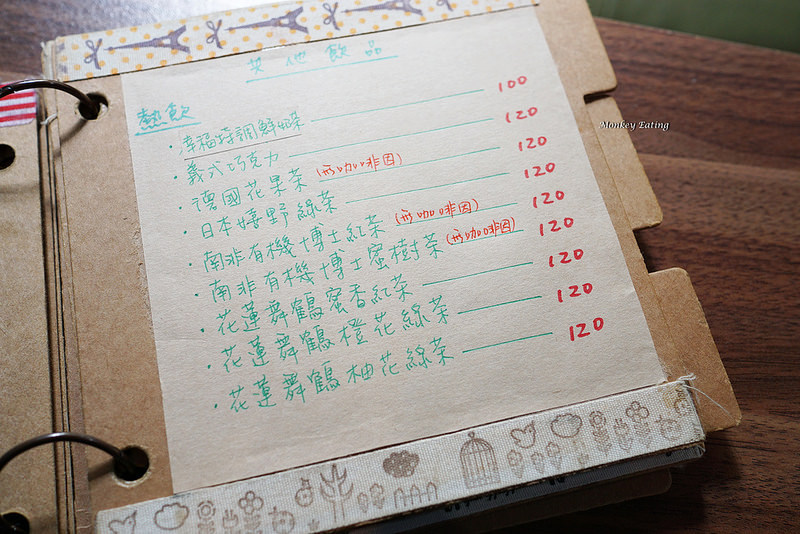 其他飲品
熱飲
·幸福特調鮮奶茶 100
·義式巧克力 120
·德國花果茶 (ㄋㄛ咖啡因) 120
·日本嬉野綠茶 120
·南非有機博士紅茶 (ㄋㄛ咖啡因) 120
·南非有機博士蜜樹茶 (ㄋㄛ咖啡因) 120
·花蓮舞鶴蜜香紅茶 120
·花蓮舞鶴橙花綠茶 120
·花蓮舞鶴柚花綠茶 120
Monkey Eating